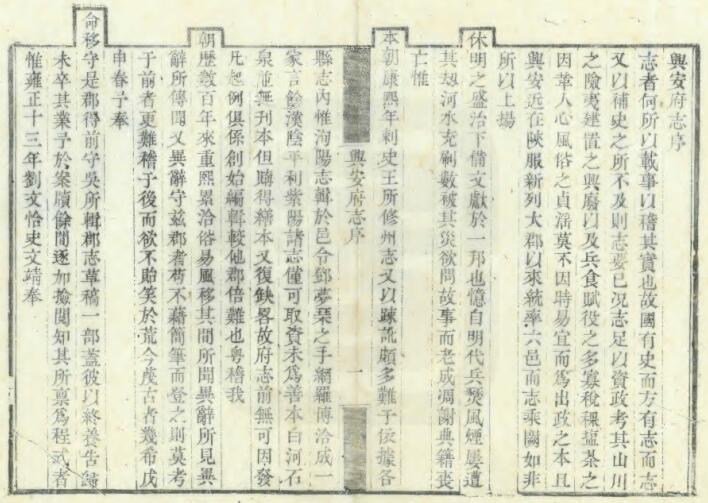 興安府志序
志者何所以載事以稽其實也故國有史而方有志而志
又以補史之所不及則志要已況志足以資政考其山川
之險夷建置之興廢以及兵食賦役之多寡稅稞塩茶之
因革人心風俗之貞淫莫不因時易宜而爲出政之本且
興安近在陝服新列大郡以來統率六邑而志乘闕如非
所以上揚
休明之盛治下備文獻於一邦也憶自明代兵燹風煙屢遭
其刼河水充刷數被其災欲問故事而老成凋謝典籍喪
亡惟
本朝康熙年刺史王所修州志又以踈訛頗多難于依據各
興安府志序
一
縣志內惟洵陽志輯於邑令鄧夢琴之手網羅博洽成一
家言餘漢陰平利紫陽諸志僅可取資未爲善本白河石
泉並無刊本但購得繕本又復缺畧故府志前無可因發
凡起例俱係創始編輯較他郡倍難也粤稽我
朝歷數百年來重熙累洽俗易風移其間所聞異辭所見異
辭所傳聞又異辭守兹郡者苟不藉簡筆而登之則莫考
于前者更難稽于後而欲不貽笑於荒今茂古者幾希戊
申春予奉
命移守是郡得前守吳所輯郡志草稿一部蓋彼以終養告歸
未卒其業予於案牘餘閒逐加撿閱知其所禀爲程式者
惟雍正十三年劉文恪史文靖奉